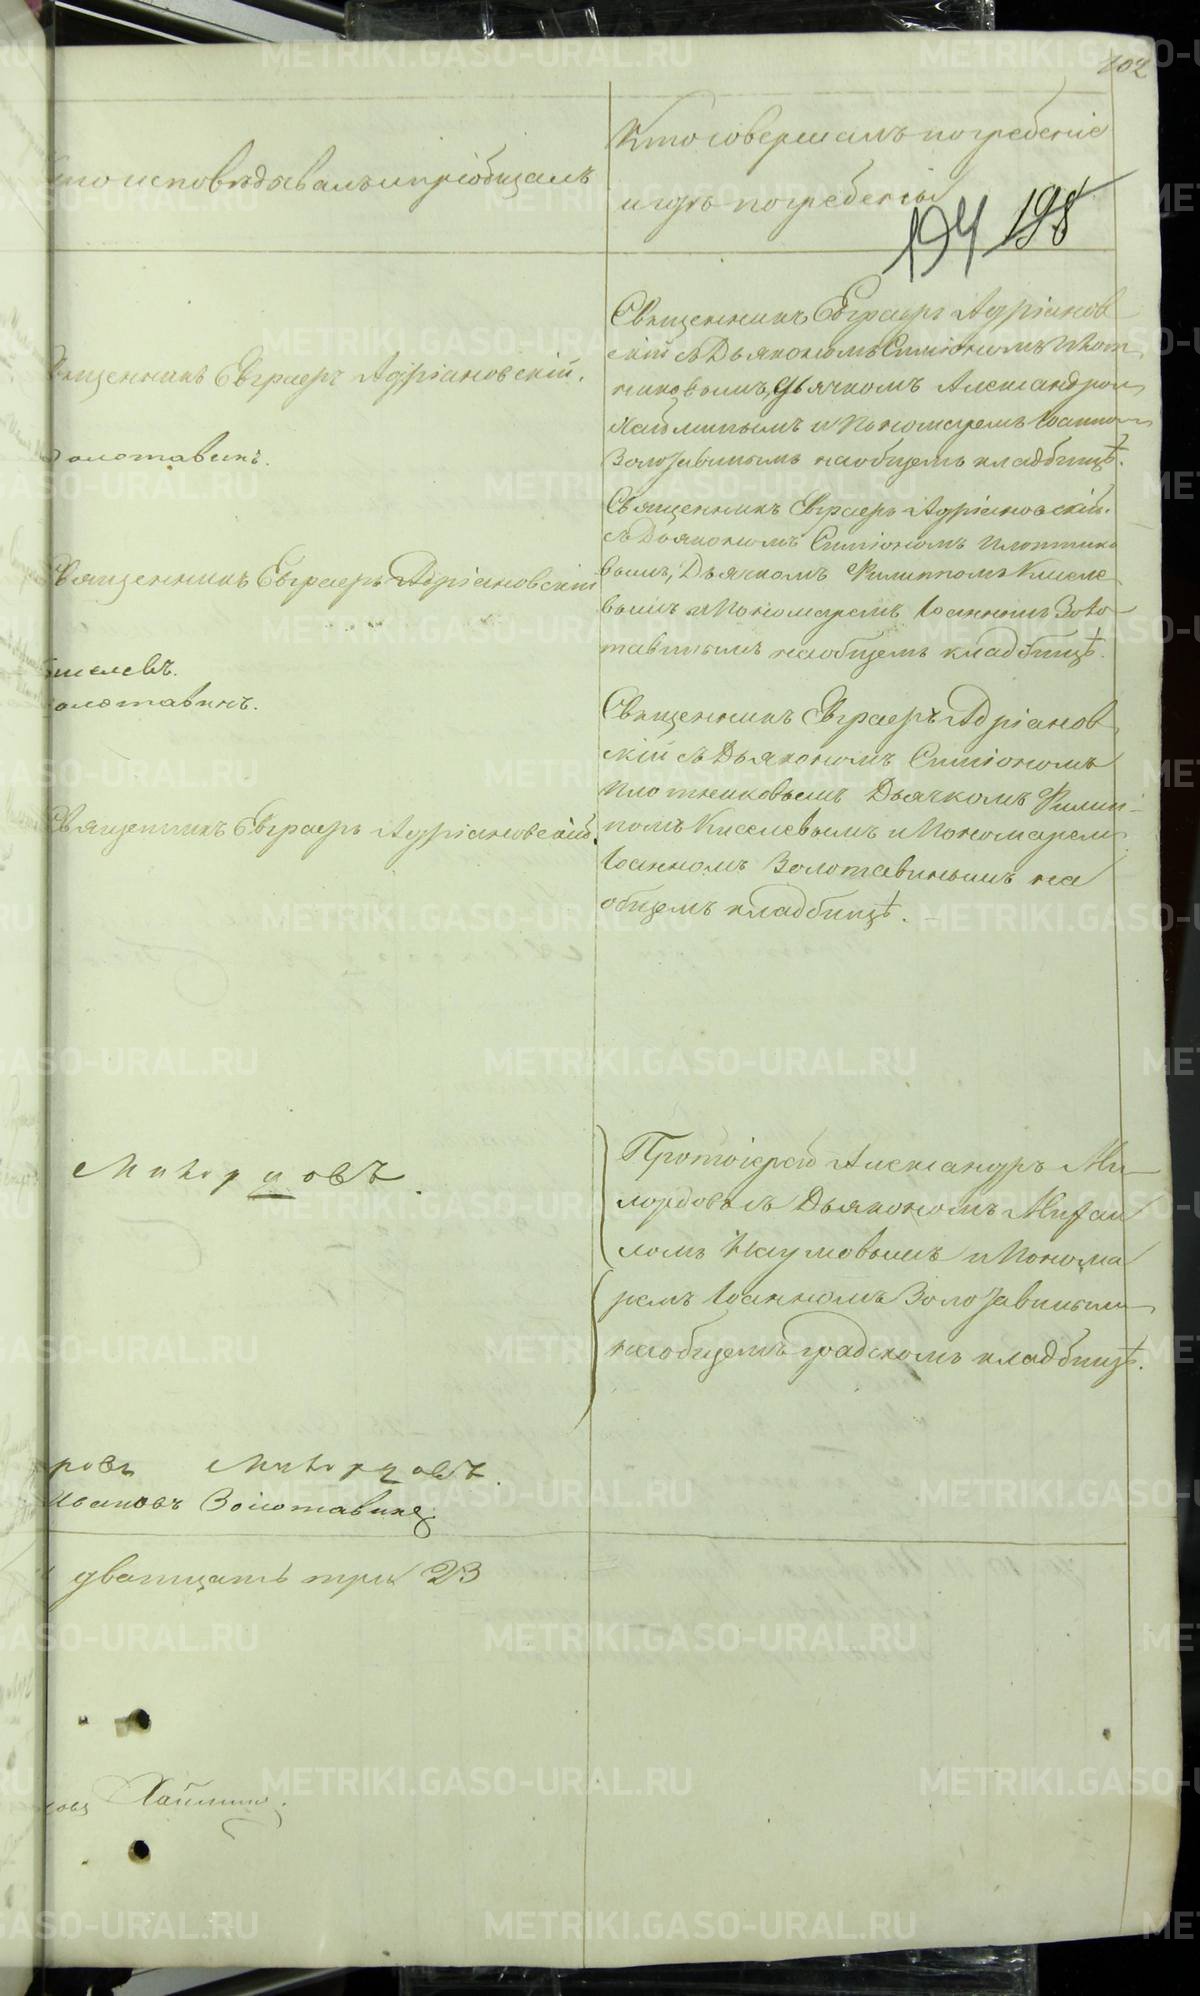 102
Кто исповѣдывалъ и пріобщалъ
Кто совершалъ погребеніе
и гдѣ погребены
194 198
Священникъ Евграфъ Адріановскій.
Золотавинъ.
Священникъ Евграфъ Адріанов
скій съ Дьякономъ Симіономъ Плот
никовымъ, Дьячкомъ Александром
и Пономаремъ Іоанном
Золотавинымъ на общемъ кладбищѣ.
Священникъ Евграфъ Адріановскій
Киселевъ.
Золотавинъ.
Священникъ Евграфъ Адріановскій.
съ Дьякономъ Симіономъ Плотнико
вымъ, Дьячкомъ Филиппомъ Кисиле
вымъ и Пономаремъ Іоанномъ Золо
тавинымъ на общемъ кладбищѣ.
Священникъ Евграфъ Адріановскій.
Священникъ Евграфъ Адріанов
скій съ Дьякономъ Симіономъ
Плотниковымъ Дьячкомъ Филип
помъ Киселевымъ и Пономарем
Іоанномъ Золотавинымъ на
общемъ кладбищѣ.
Протоіерей Александръ Ми
съ Дьякономъ Михаи
ломъ Наумовымъ и Понома
ремъ Іоанномъ Золотавиным
на общемъ градскомъ кладбищѣ.
Ивановъ Золотавинъ
дватцать три 23
METRIKI.GASO-URAL.RU